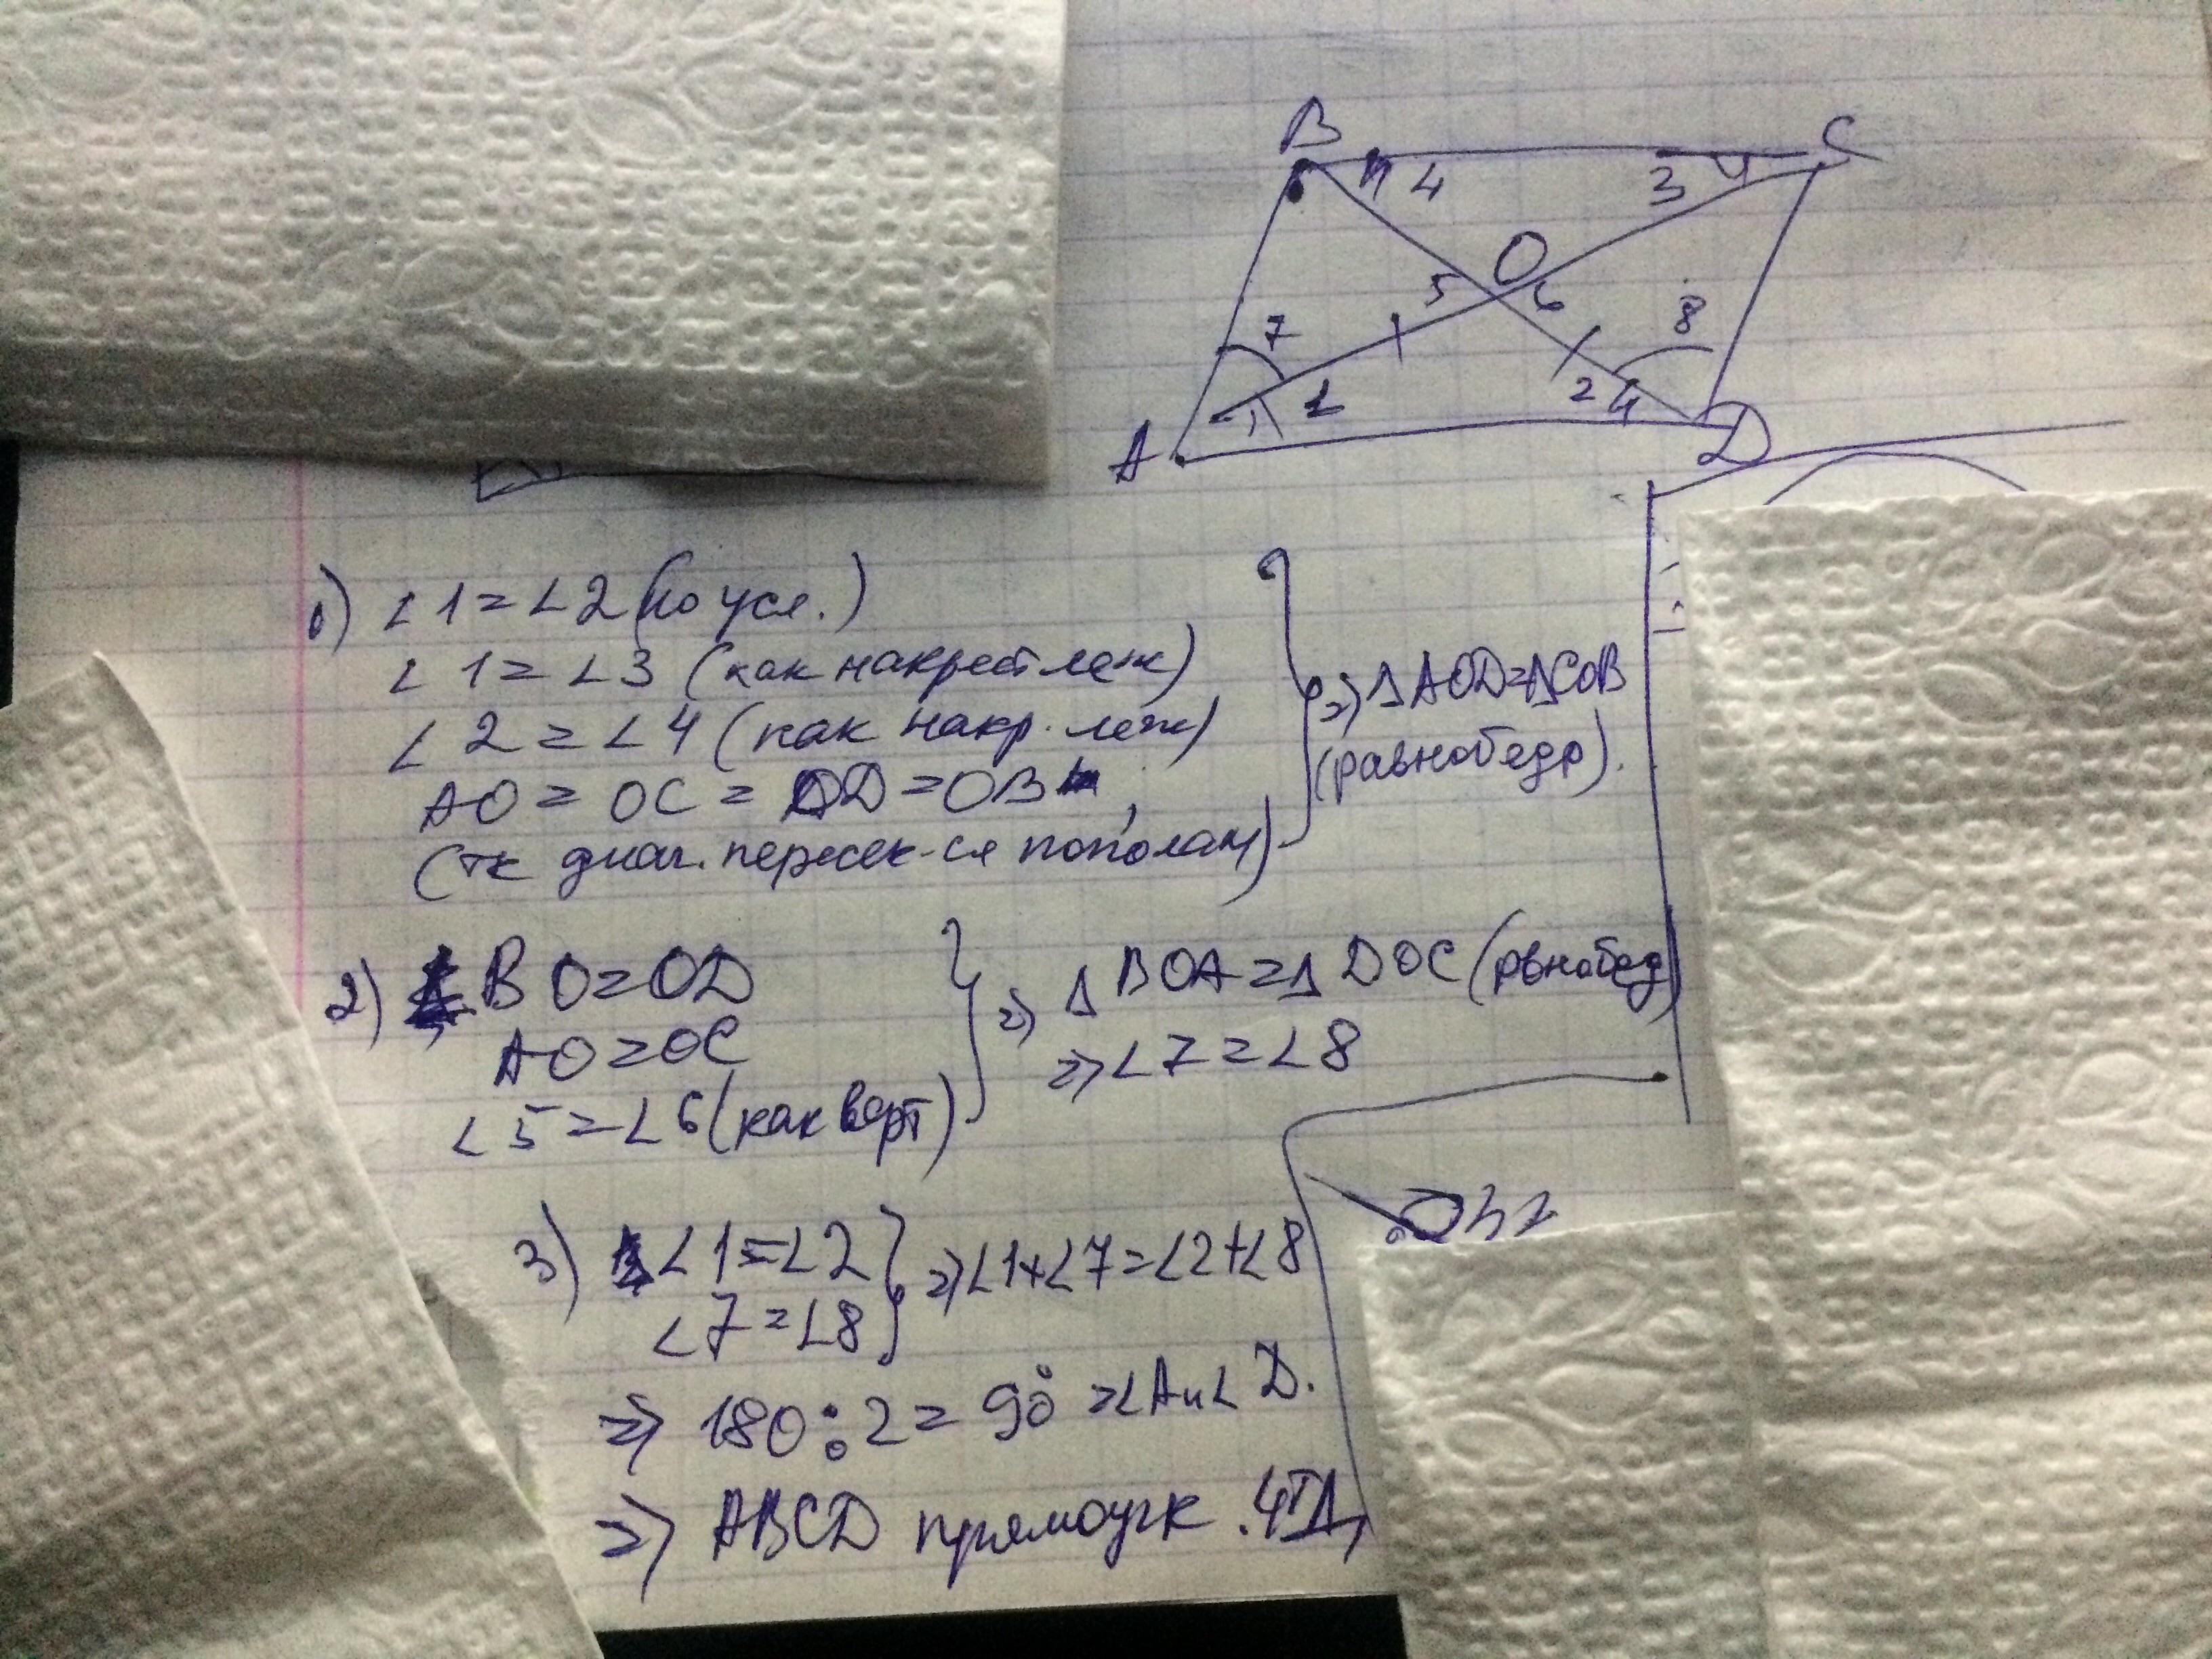 B C
4 3
O
5 6
7 8
1 2 4
A D
1) ∠1=∠2 (по усл.)
∠1=∠3 (как накрест леж)
∠2=∠4 (как накр. леж)
AO=OC=OD=OB
(тк диаг. пересек-ся пополам)
=> ΔAOD=ΔCOB
(равнобедр).
2) BO=OD
AO=OC
∠5=∠6 (как верт)
=> Δ BOA=Δ DOC (рвнобед)
=> ∠7=∠8
3) ∠1=∠2
∠7=∠8
=> ∠1+∠7=∠2+∠8
=> 180:2=90° =∠A и ∠D.
=> ABCD прямоугк. ЧТД